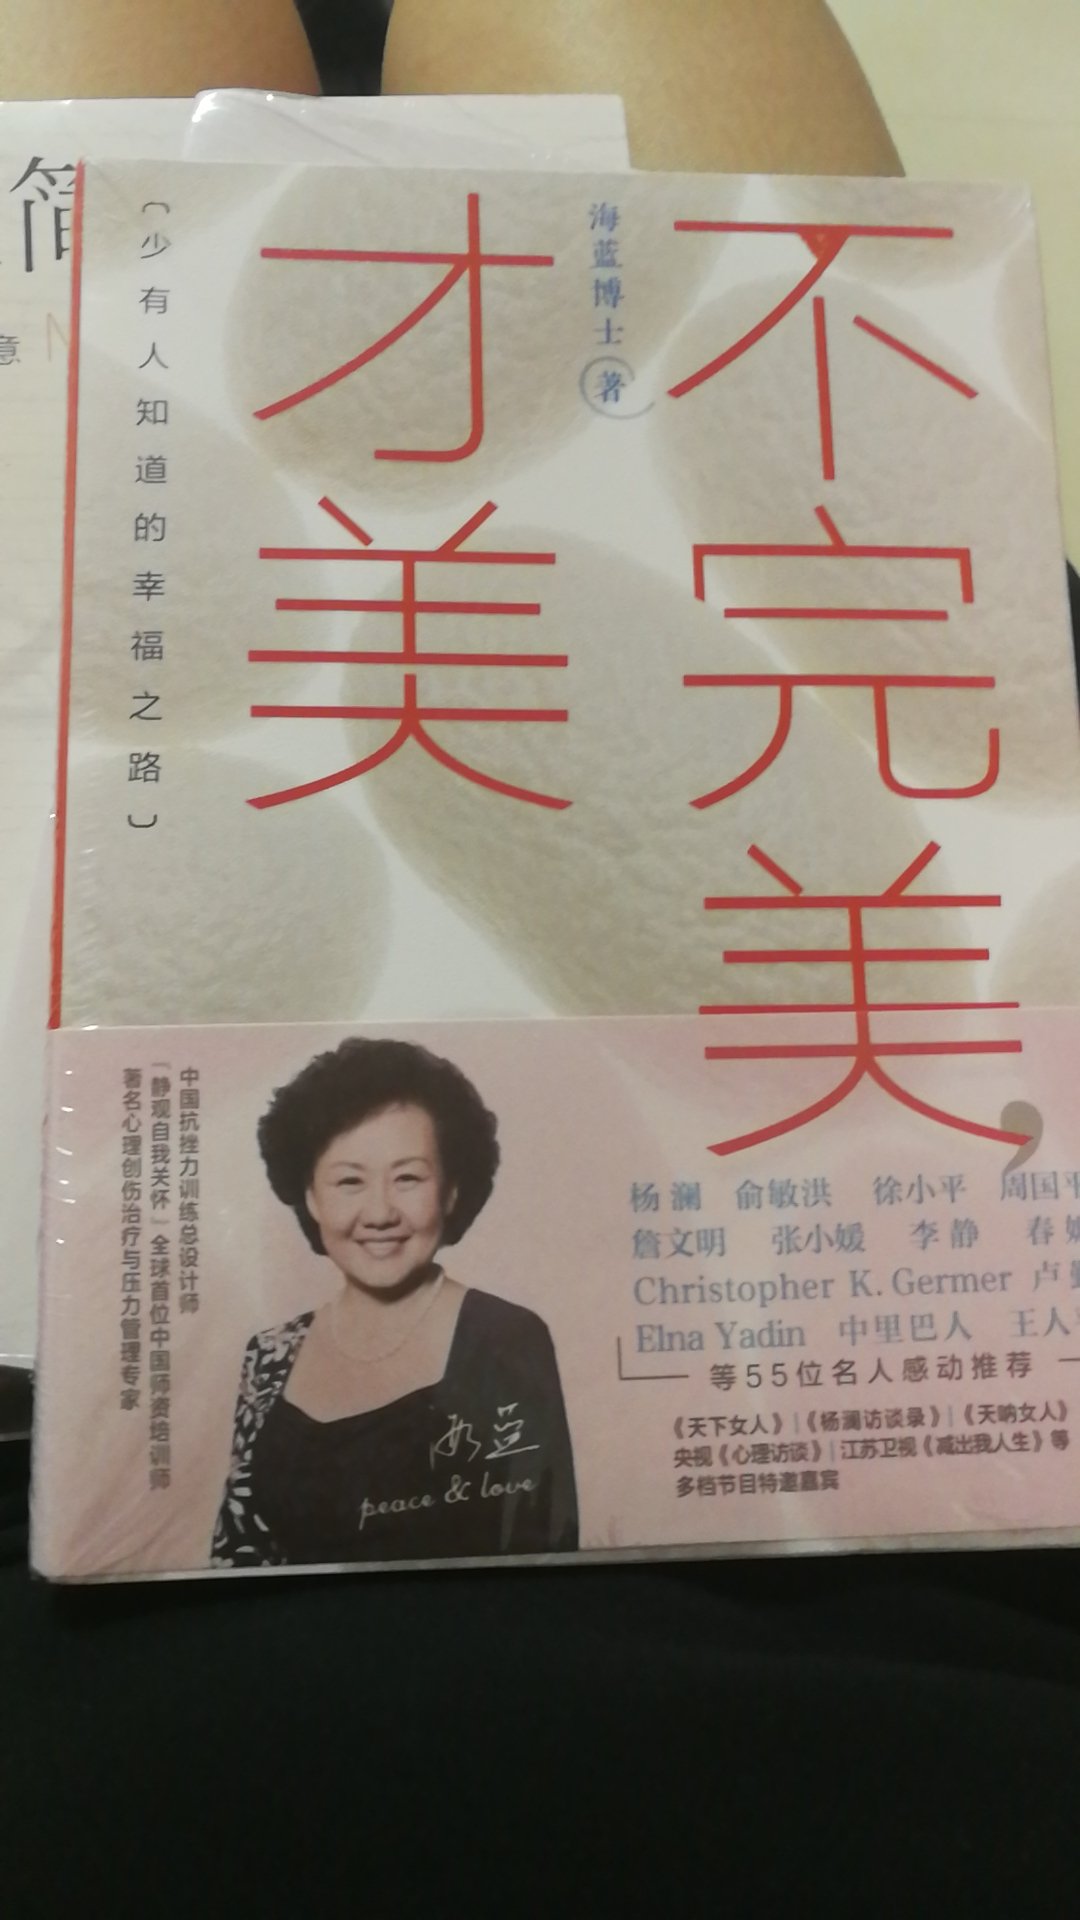 不完美,
才美
海蓝博士 著
(少有人知道的幸福之路)
中国抗挫力训练总设计师
「静观自我关怀」全球首位中国师资培训师
著名心理创伤治疗与压力管理专家
海蓝
peace & love
杨澜 俞敏洪 徐小平 周国平
詹文明 张小媛 李静 春
Christopher K. Germer 卢勤
Elna Yadin 中里巴人 王人平
等55位名人感动推荐
《天下女人》|《杨澜访谈录》|《天呐女人》
央视《心理访谈》|江苏卫视《减出我人生》等
多档节目特邀嘉宾
简
意